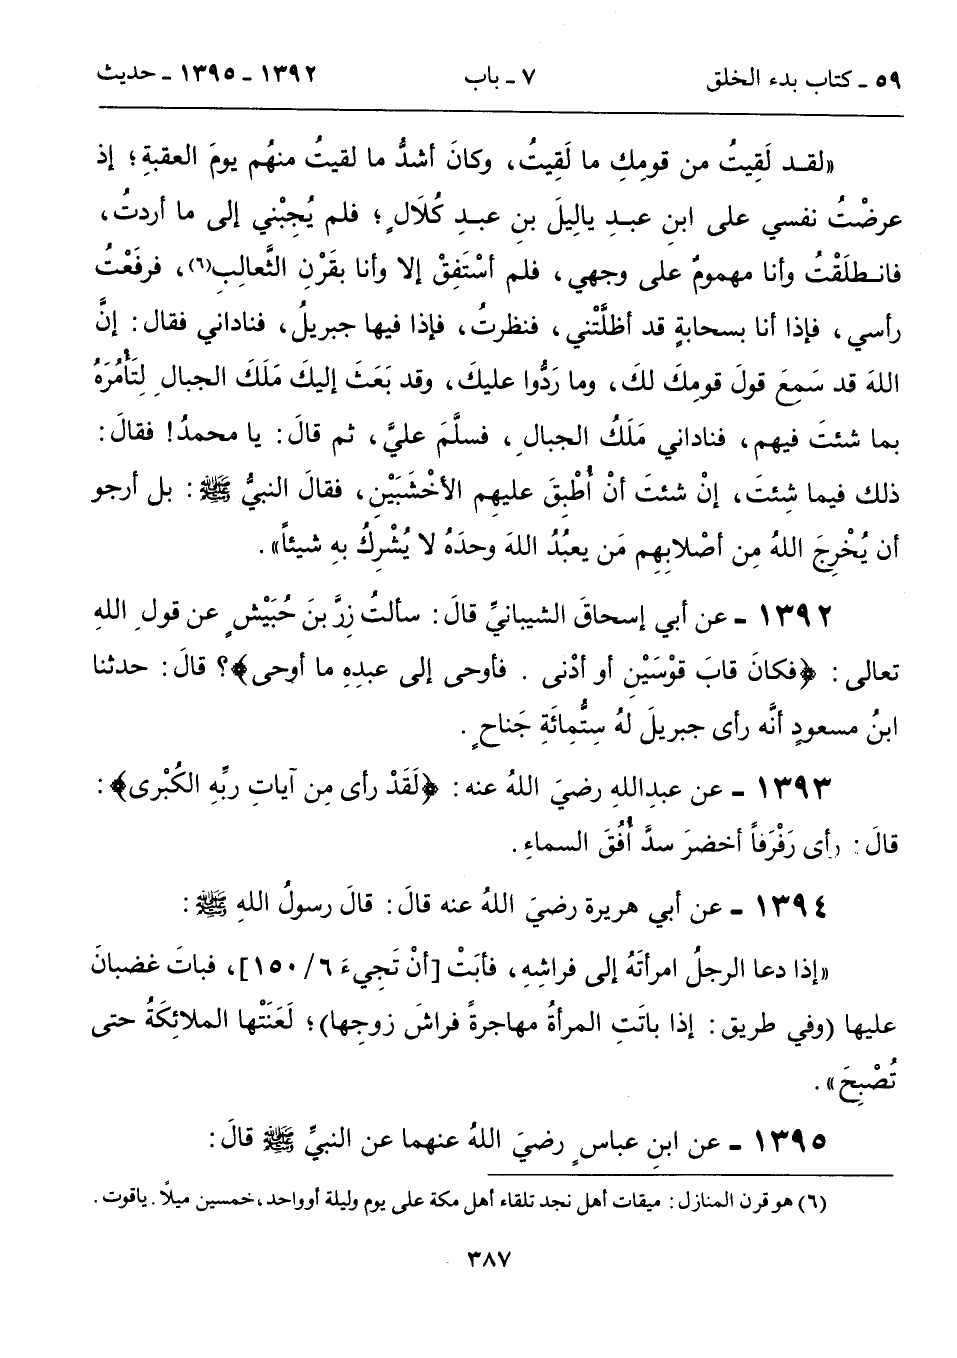 ٥٩ ـ كتاب بدء الخلق ٧ ـ باب ١٣٩٢ ـ ١٣٩٥ ـ حديث
«لقـد لَقِيتُ من قومِكِ ما لَقِيتُ، وكانَ أشدُّ ما لقيتُ منهُم يومَ العقبةِ؛ إذ
عرضْتُ نفسي على ابنِ عبـدِ ياليلَ بنِ عبـدِ كُلَالٍ؛ فلم يُجِبْني إلى ما أردتُ،
فانـطلَقْتُ وأنا مهمومٌ على وجهي، فلم أسْتَفِقْ إلا وأنا بقَرْنِ الثَّعالِبِ(٦)، فرفَعْتُ
رأسي، فإذا أنا بسحابةٍ قد أظلَّتْني، فنظرتُ، فإذا فيها جبريلُ، فناداني فقال: إنَّ
اللهَ قد سَمِعَ قولَ قومِكَ لكَ، وما رَدُّوا عليكَ، وقد بَعَثَ إليكَ مَلَكَ الجبالِ لِتَأْمُرَهُ
بما شئتَ فيهم، فناداني مَلَكُ الجبالِ، فسلَّمَ عليَّ، ثم قالَ: يا محمدُ! فقالَ:
ذلك فيما شِئتَ، إنْ شئتَ أنْ أُطْبِقَ عليهِم الأخْشَبَيْنِ، فقالَ النبيُّ ﷺ: بل أرجو
أن يُخْرِجَ اللهُ مِن أصْلابِهِم مَن يعبُدُ اللهَ وحدَهُ لا يُشْرِكُ بهِ شيئاً».
١٣٩٢ ـ عن أبي إسحاقَ الشيبانيِّ قالَ: سألتُ زِرَّ بنَ حُبَيْشٍ عن قولِ اللهِ
تعالى: ﴿فكانَ قابَ قوْسَيْنِ أو أدْنى . فأوحى إلى عبدِهِ ما أوحى﴾؟ قالَ: حدثنا
ابنُ مسعودٍ أنَّه رأى جبريلَ لهُ سِتُّمِائَةِ جَناحٍ.
١٣٩٣ ـ عن عبدِاللهِ رضيَ اللهُ عنه: ﴿لَقَدْ رأى مِن آياتِ ربِّهِ الكُبْرى﴾:
قالَ: رأى رَفْرَفاً أخضرَ سدَّ أُفُقَ السماءِ.
١٣٩٤ ـ عن أبي هريرة رضيَ اللهُ عنه قالَ: قالَ رسولُ اللهِ ﷺ:
«إذا دعا الرجلُ امرأتَهُ إلى فراشِهِ، فأبَتْ [أنْ تَجيءَ ٦/ ١٥٠]، فباتَ غضبانَ
عليها (وفي طريق: إذا باتَتِ المرأةُ مهاجرةً فراشَ زوجِها)؛ لَعَنَتْها الملائِكَةُ حتى
تُصْبِحَ».
١٣٩٥ ـ عن ابنِ عباسٍ رضيَ اللهُ عنهما عن النبيِّ ﷺ قالَ:
(٦) هو قرن المنازل: ميقات أهل نجد تلقاء أهل مكة على يوم وليلة أوواحد، خمسين ميلاً. ياقوت.
٣٨٧